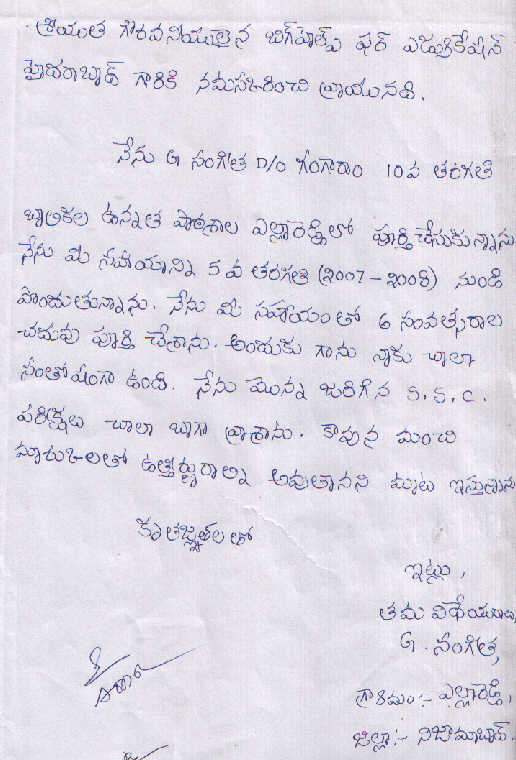 శ్రీయుత గౌరవనీయులైన బిగ్‌హెల్ప్ ఫర్ ఎడ్యుకేషన్
హైదరాబాద్ గారికి నమస్కరించి వ్రాయునది.
నేను G సంగీత D/O గంగారాం 10వ తరగతి
బాలికల ఉన్నత పాఠశాల ఎల్లారెడ్డిలో పూర్తి చేసుకున్నాను
నేను మీ సహాయాన్ని 5 వ తరగతి (2007-2008) నుండి
పొందుతున్నాను. నేను మీ సహాయం తో 6 సంవత్సరాల
చదువు పూర్తి చేశాను. అందుకు గాను నాకు చాలా
సంతోషంగా ఉంది. నేను మొన్న జరిగిన S.S.C.
పరీక్షలు చాలా బాగా వ్రాశాను. కావున మంచి
మార్కులతో ఉత్తీర్ణురాల్ని అవుతానని మాట ఇస్తున్నాను
కృతజ్ఞతలతో
ఇట్లు,
తమ విధేయురాలు,
G. సంగీత,
గ్రామం:- ఎల్లారెడ్డి,
జిల్లా:- నిజామాబాద్.